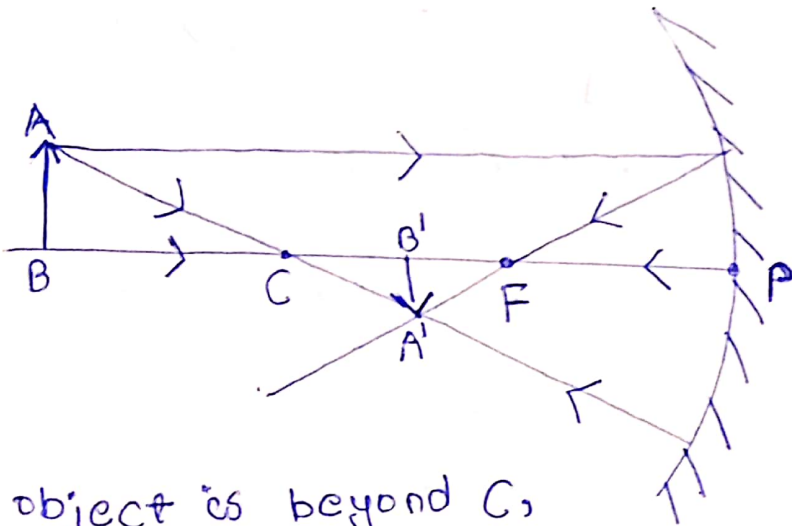 A
B
C
B'
A'
F
P
object is beyond C,